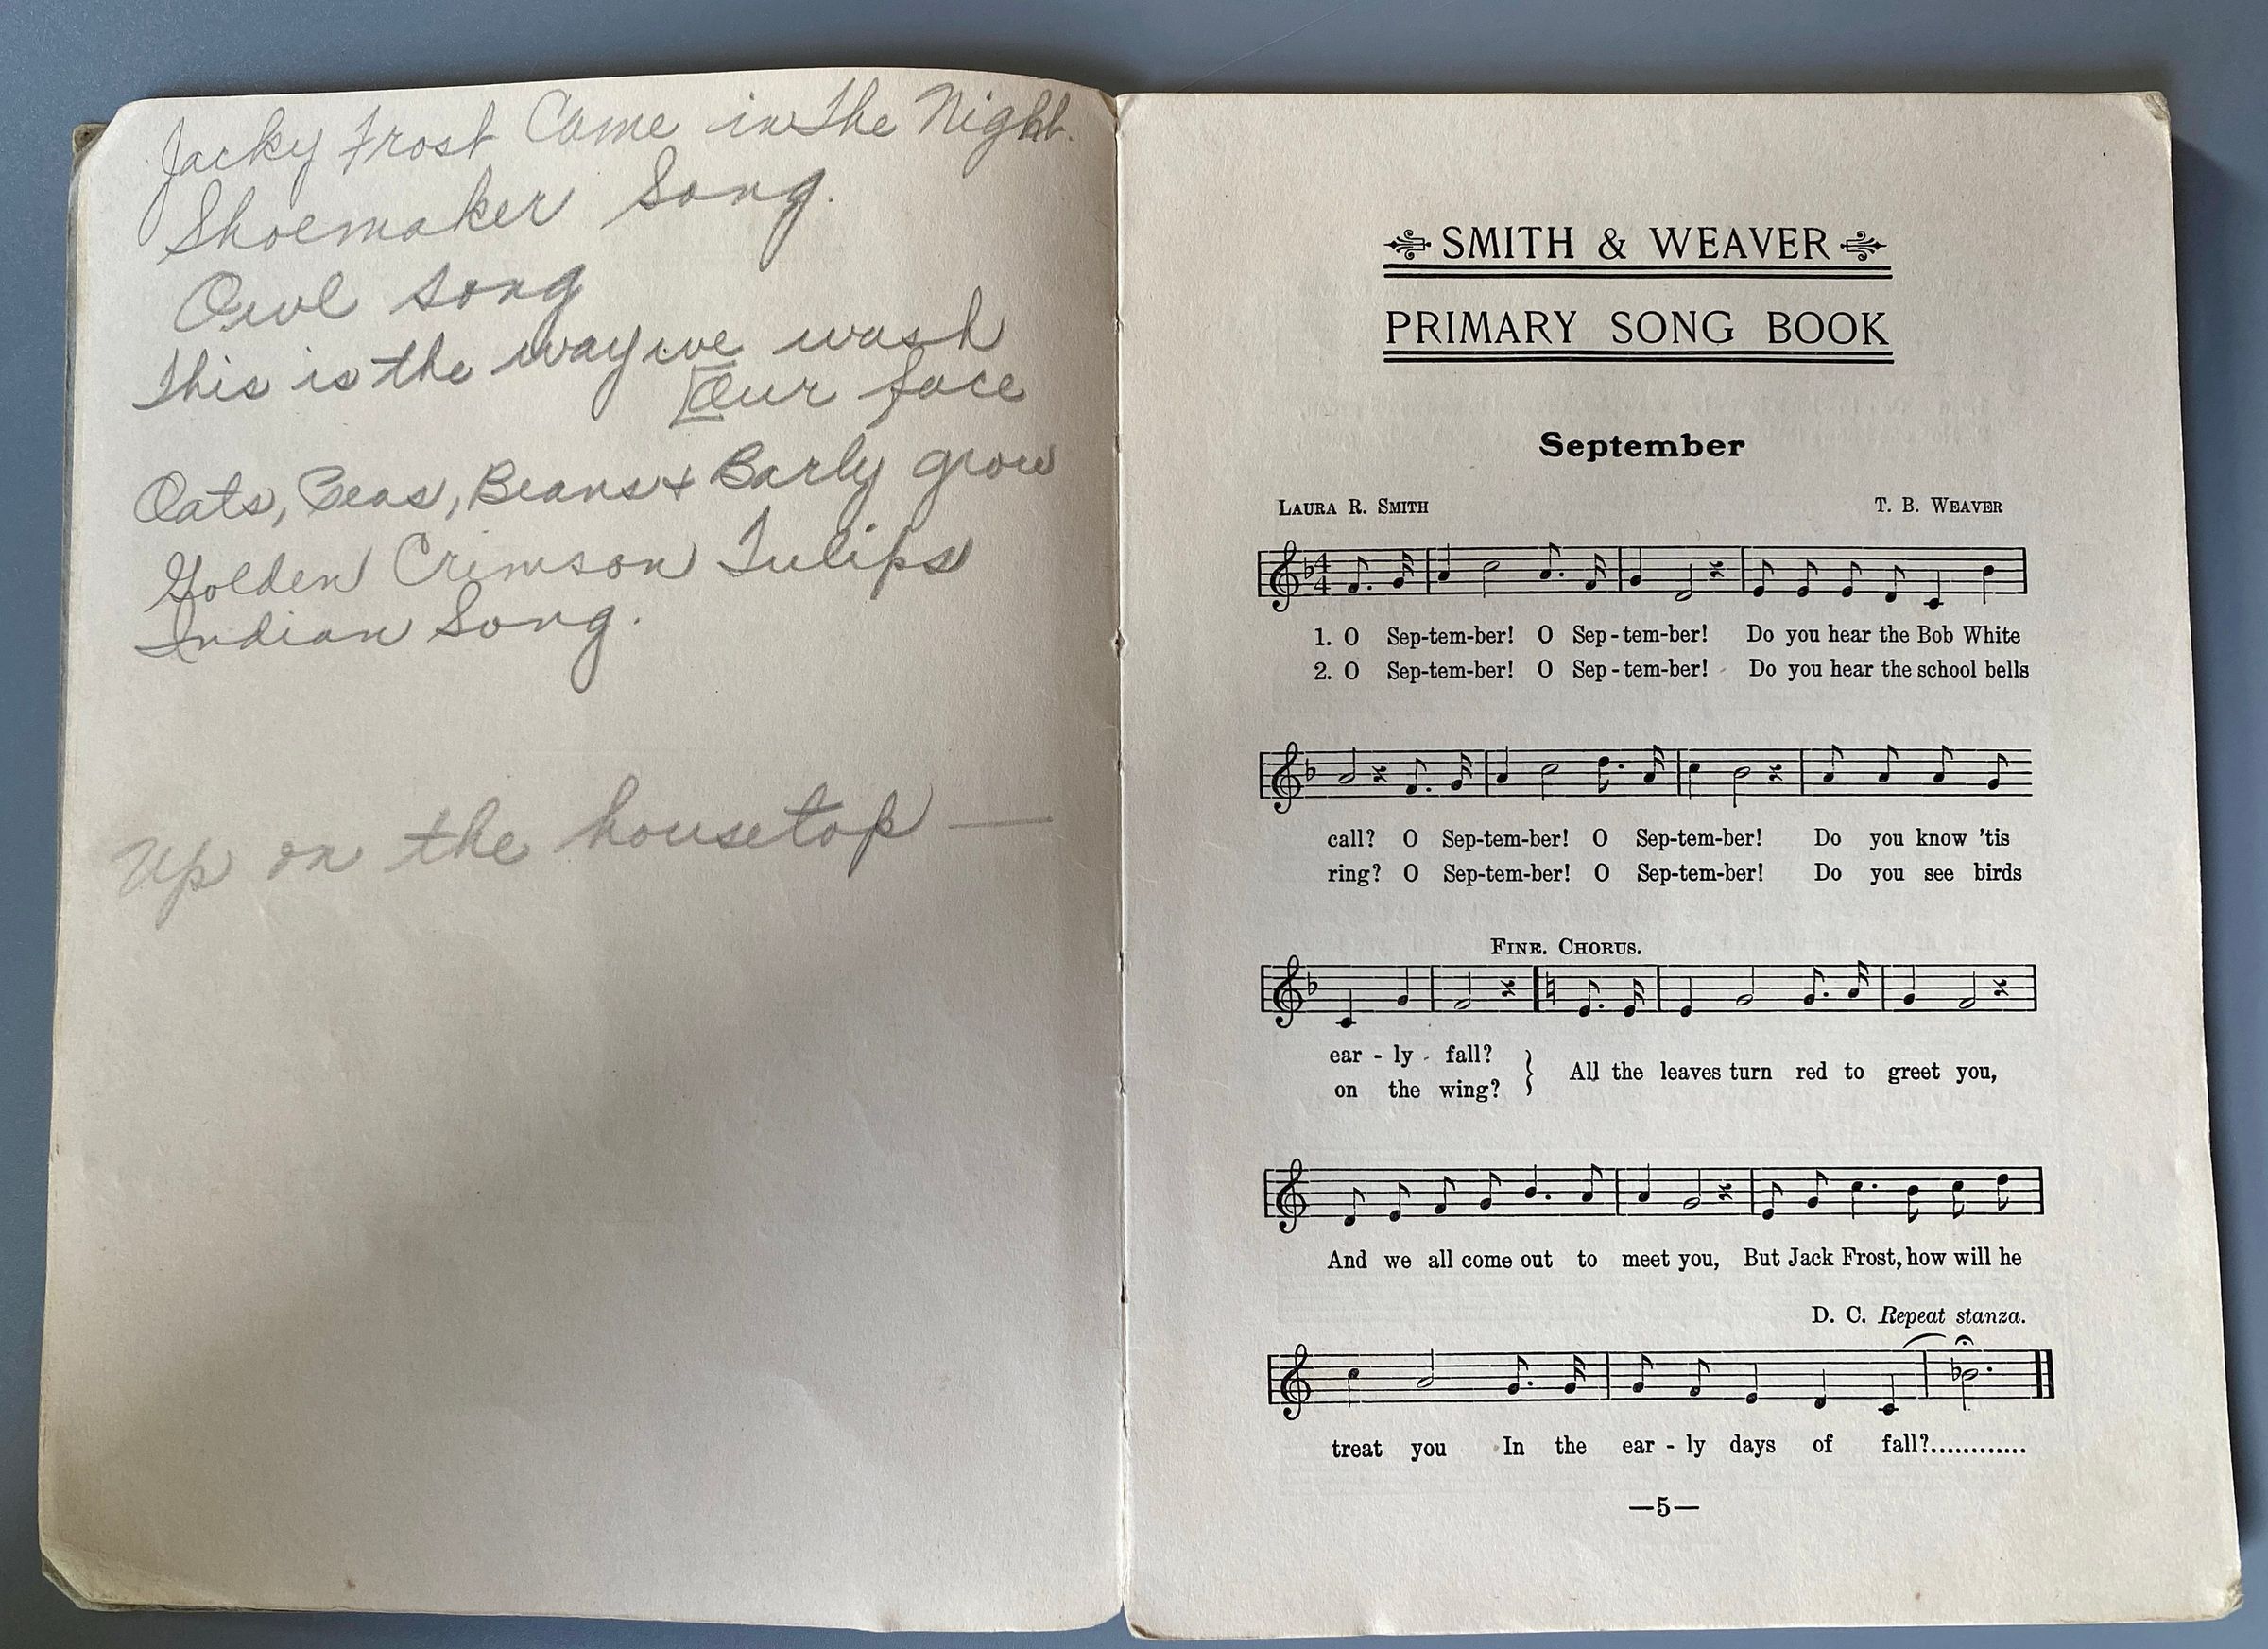 Jacky Frost Came in the Night.
Shoemaker Song.
Owl song
This is the way we wash
Our face
Oats, Peas, Beans + Barly grow
Golden Crimson Tulips
Indian Song.
Up on the housetop —
SMITH & WEAVER
PRIMARY SONG BOOK
September
LAURA R. SMITH T. B. WEAVER
4
4
1. O Sep-tem-ber! O Sep-tem-ber! Do you hear the Bob White
2. O Sep-tem-ber! O Sep-tem-ber! Do you hear the school bells
call? O Sep-tem-ber! O Sep-tem-ber! Do you know 'tis
ring? O Sep-tem-ber! O Sep-tem-ber! Do you see birds
FINE. CHORUS.
ear - ly fall?
on the wing? } All the leaves turn red to greet you,
And we all come out to meet you, But Jack Frost, how will he
D. C. Repeat stanza.
treat you In the ear - ly days of fall?............
—5—